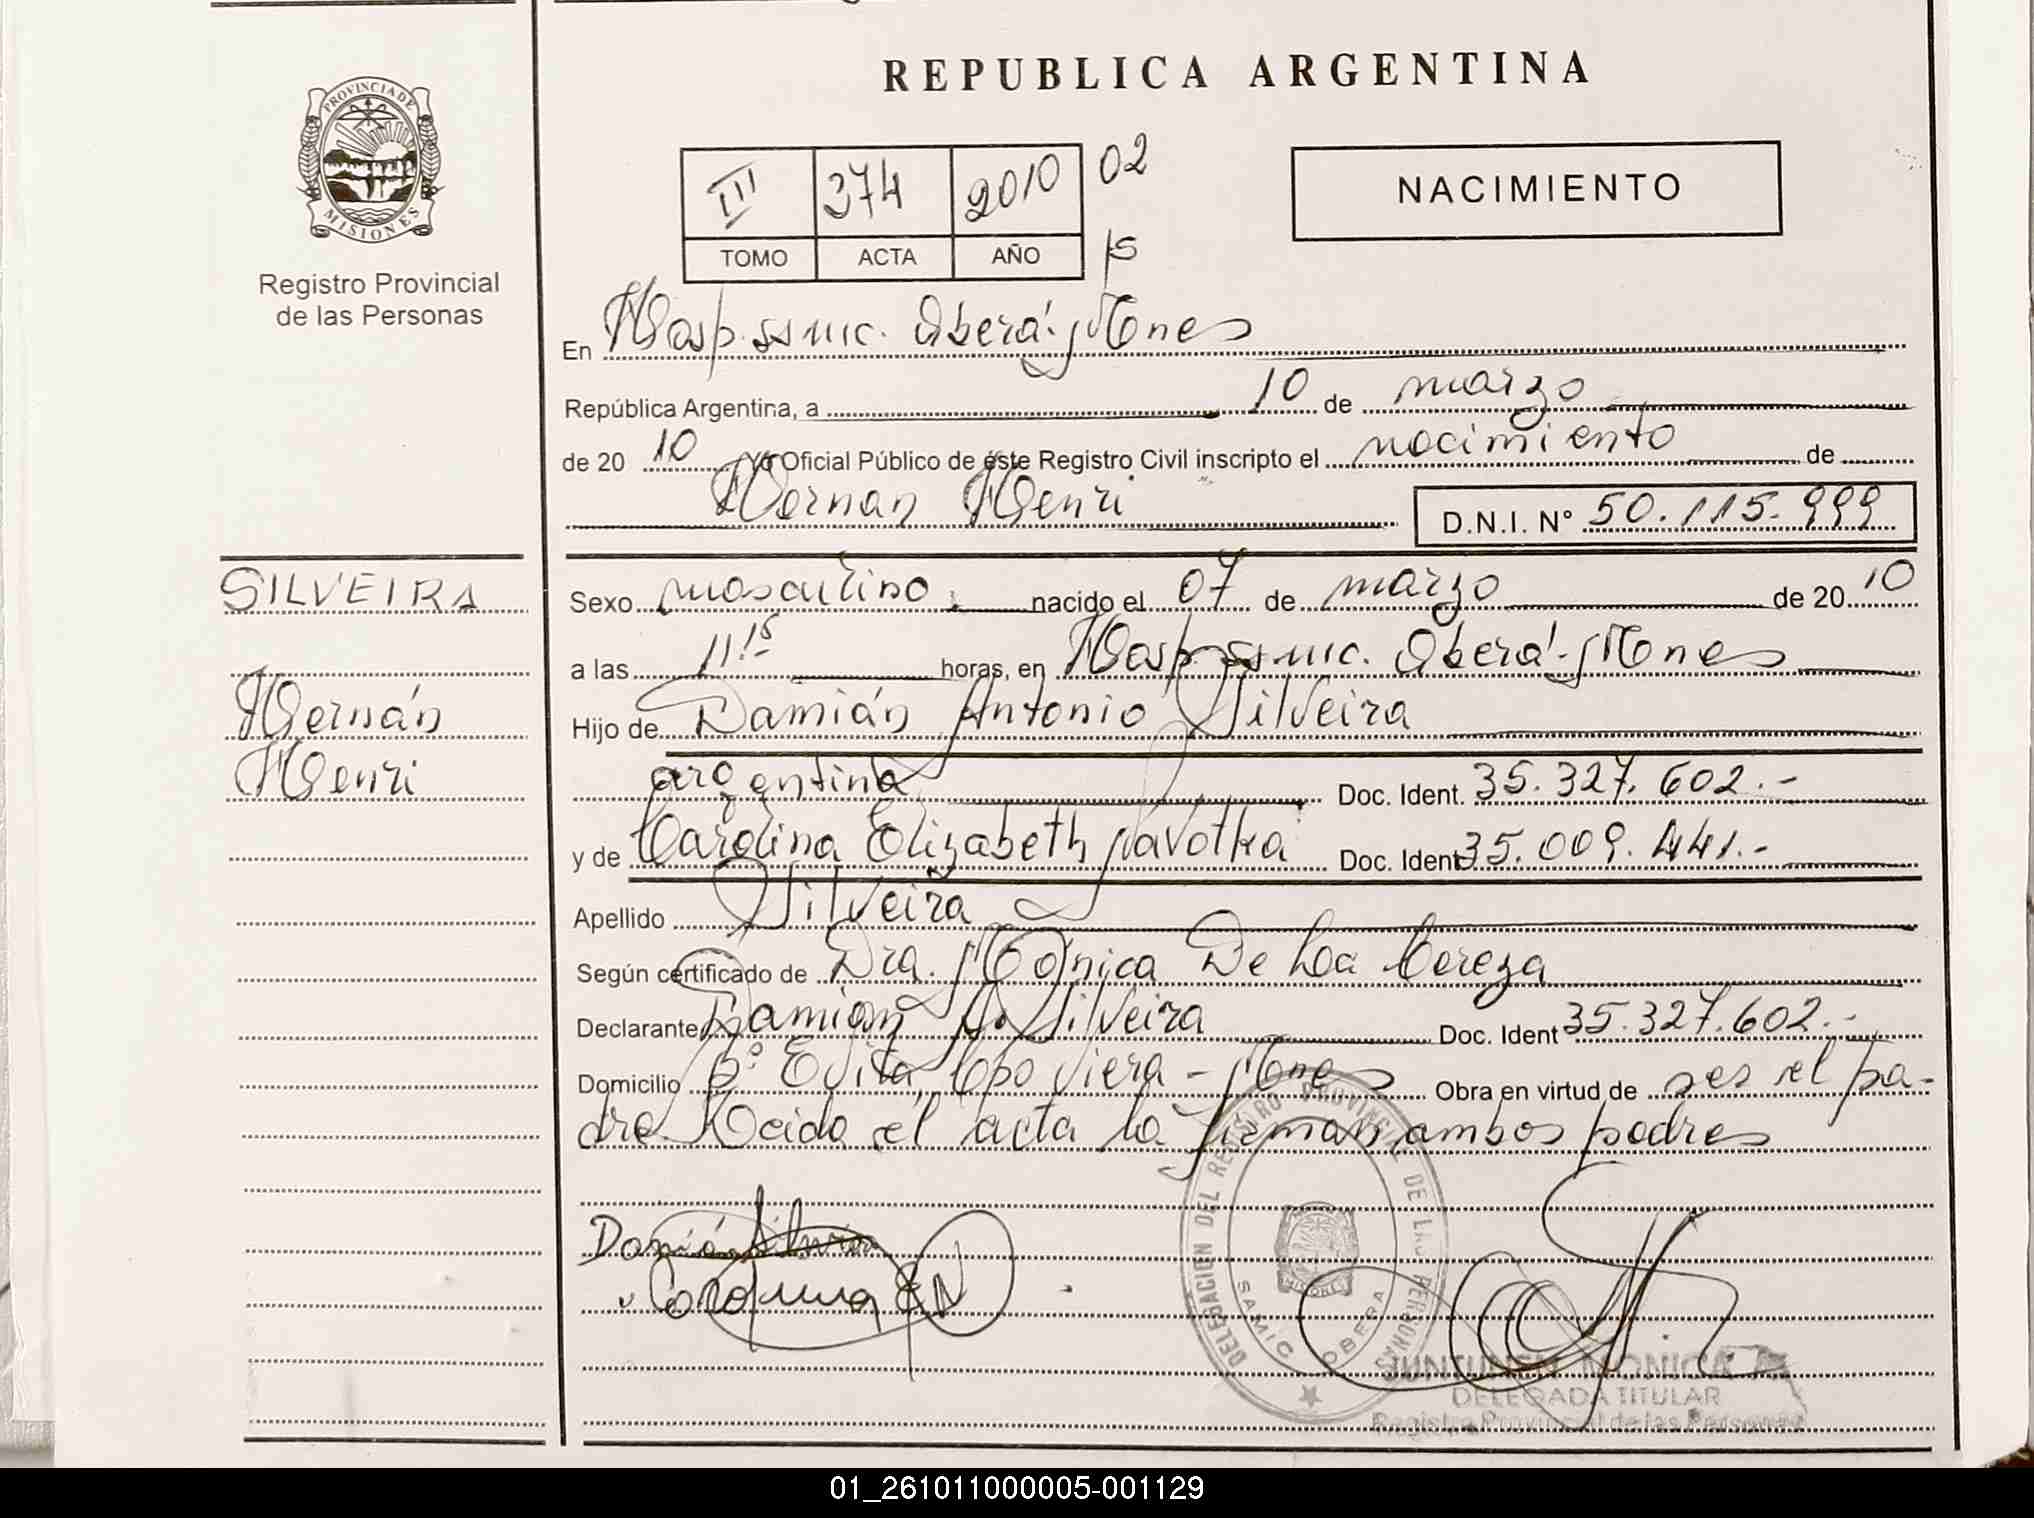 REPUBLICA ARGENTINA
PROVINCIA DE
MISIONES
Registro Provincial
de las Personas
III 374 2010 02
TOMO ACTA AÑO
NACIMIENTO
En Hosp. ss mic. Oberá-Mones
República Argentina, a 10 de marzo
de 20 10 Yo Oficial Público de éste Registro Civil inscripto el nacimiento de
Hernan Henri D.N.I. N° 50.115.999
SILVEIRA
Hernán
Henri
Sexo masculino nacido el 07 de marzo de 20 10
a las 11.15 horas, en Hosp. ss mic. Oberá-Mones
Hijo de Damián Antonio Silveira
argentina Doc. Ident. 35.327.602.-
y de Carolina Elizabeth Navotka Doc. Ident 35.009.441.-
Apellido Silveira
Según certificado de Dra. Mónica De La Cereza
Declarante Damián A. Silveira Doc. Ident 35.327.602.-
Domicilio B° Evita, Cpo Viera - Mones Obra en virtud de ser el pa-
dre Leida el acta la firman ambos padres
Damián Silveira
Carolina E N
DELEGACION DEL REGISTRO PROVINCIAL DE LAS PERSONAS
SAMIC OBERA
JUNTUNEN MONICA
DELEGADA TITULAR
Registro Provincial de las Personas
01_261011000005-001129